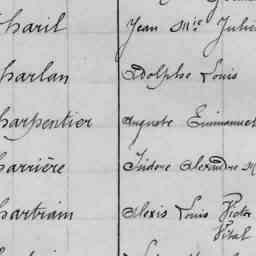 haril Jean Mie Julie
harlan Adolphe Louis
harpentier Auguste Emmanuel
harrière Isidore Alexandre M
hartrain Alexis Louis Victor
Vital